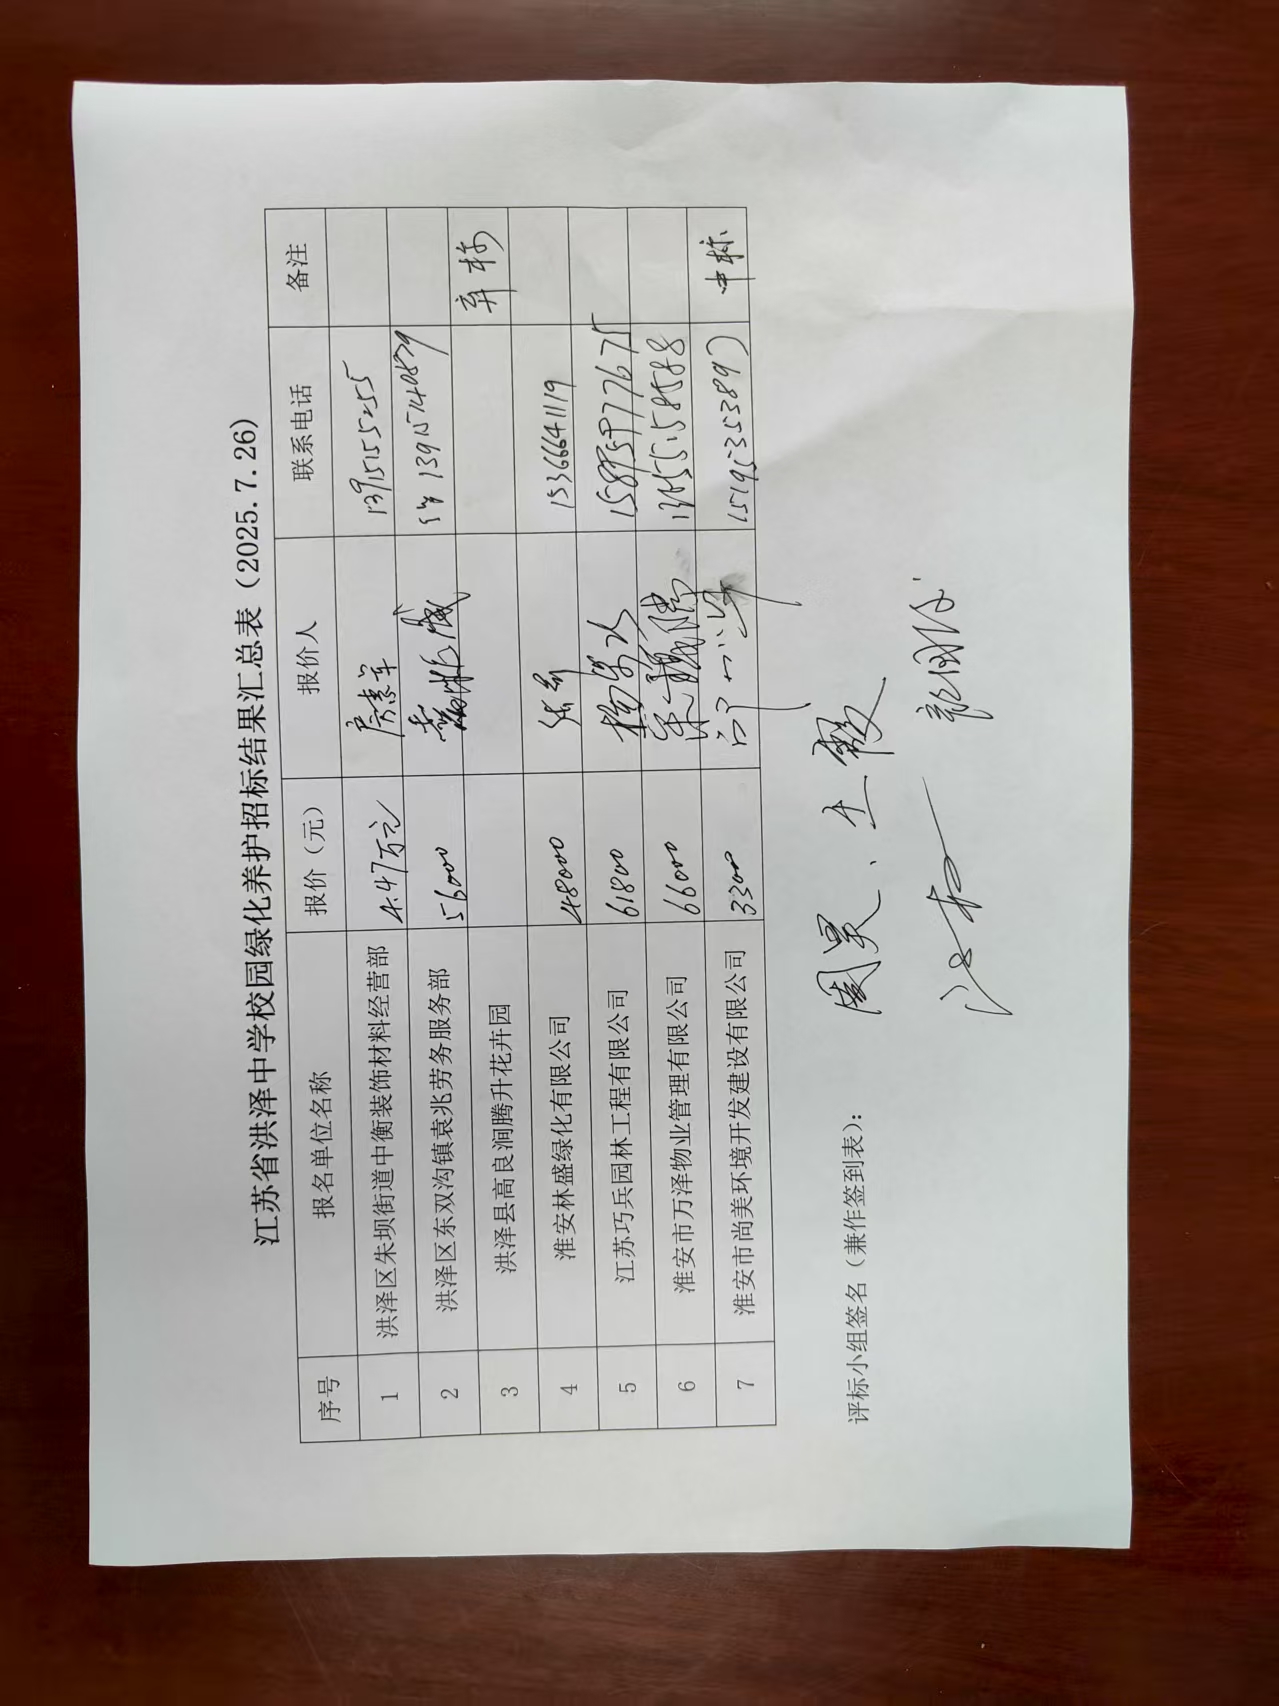 江苏省洪泽中学校园绿化养护招标结果汇总表（2025.7.26）
序号 报名单位名称 报价（元） 报价人 联系电话 备注
1 洪泽区朱坝街道中衡装饰材料经营部 4.47万元 13915155255
2 洪泽区东双沟镇袁兆劳务服务部 56000 13915740879
3 洪泽县高良涧腾升花卉园 弃标
4 淮安林盛绿化有限公司 48000 15366641119
5 江苏巧兵园林工程有限公司 61800
6 淮安市万泽物业管理有限公司 66000
7 淮安市尚美环境开发建设有限公司 3300 15195353897 中标
评标小组签名（兼作签到表）： 周昊、